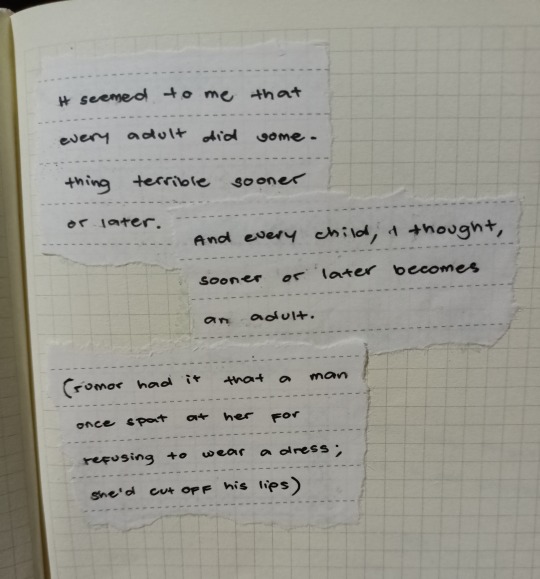 It seemed to me that
every adult did some-
thing terrible sooner
or later.
And every child, I thought,
sooner or later becomes
an adult.
(rumor had it that a man
once spat at her for
refusing to wear a dress;
she'd cut off his lips)